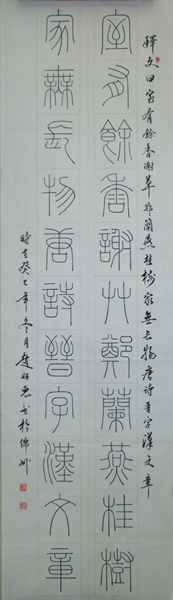 釋文曰室有餘香謝草鄭蘭燕桂樹家無長物唐诗晋字漢文章
室有餘香謝艸鄭蘭燕桂樹
家無長物唐詩晉字漢文章
時在癸巳年冬月趙书於錦州